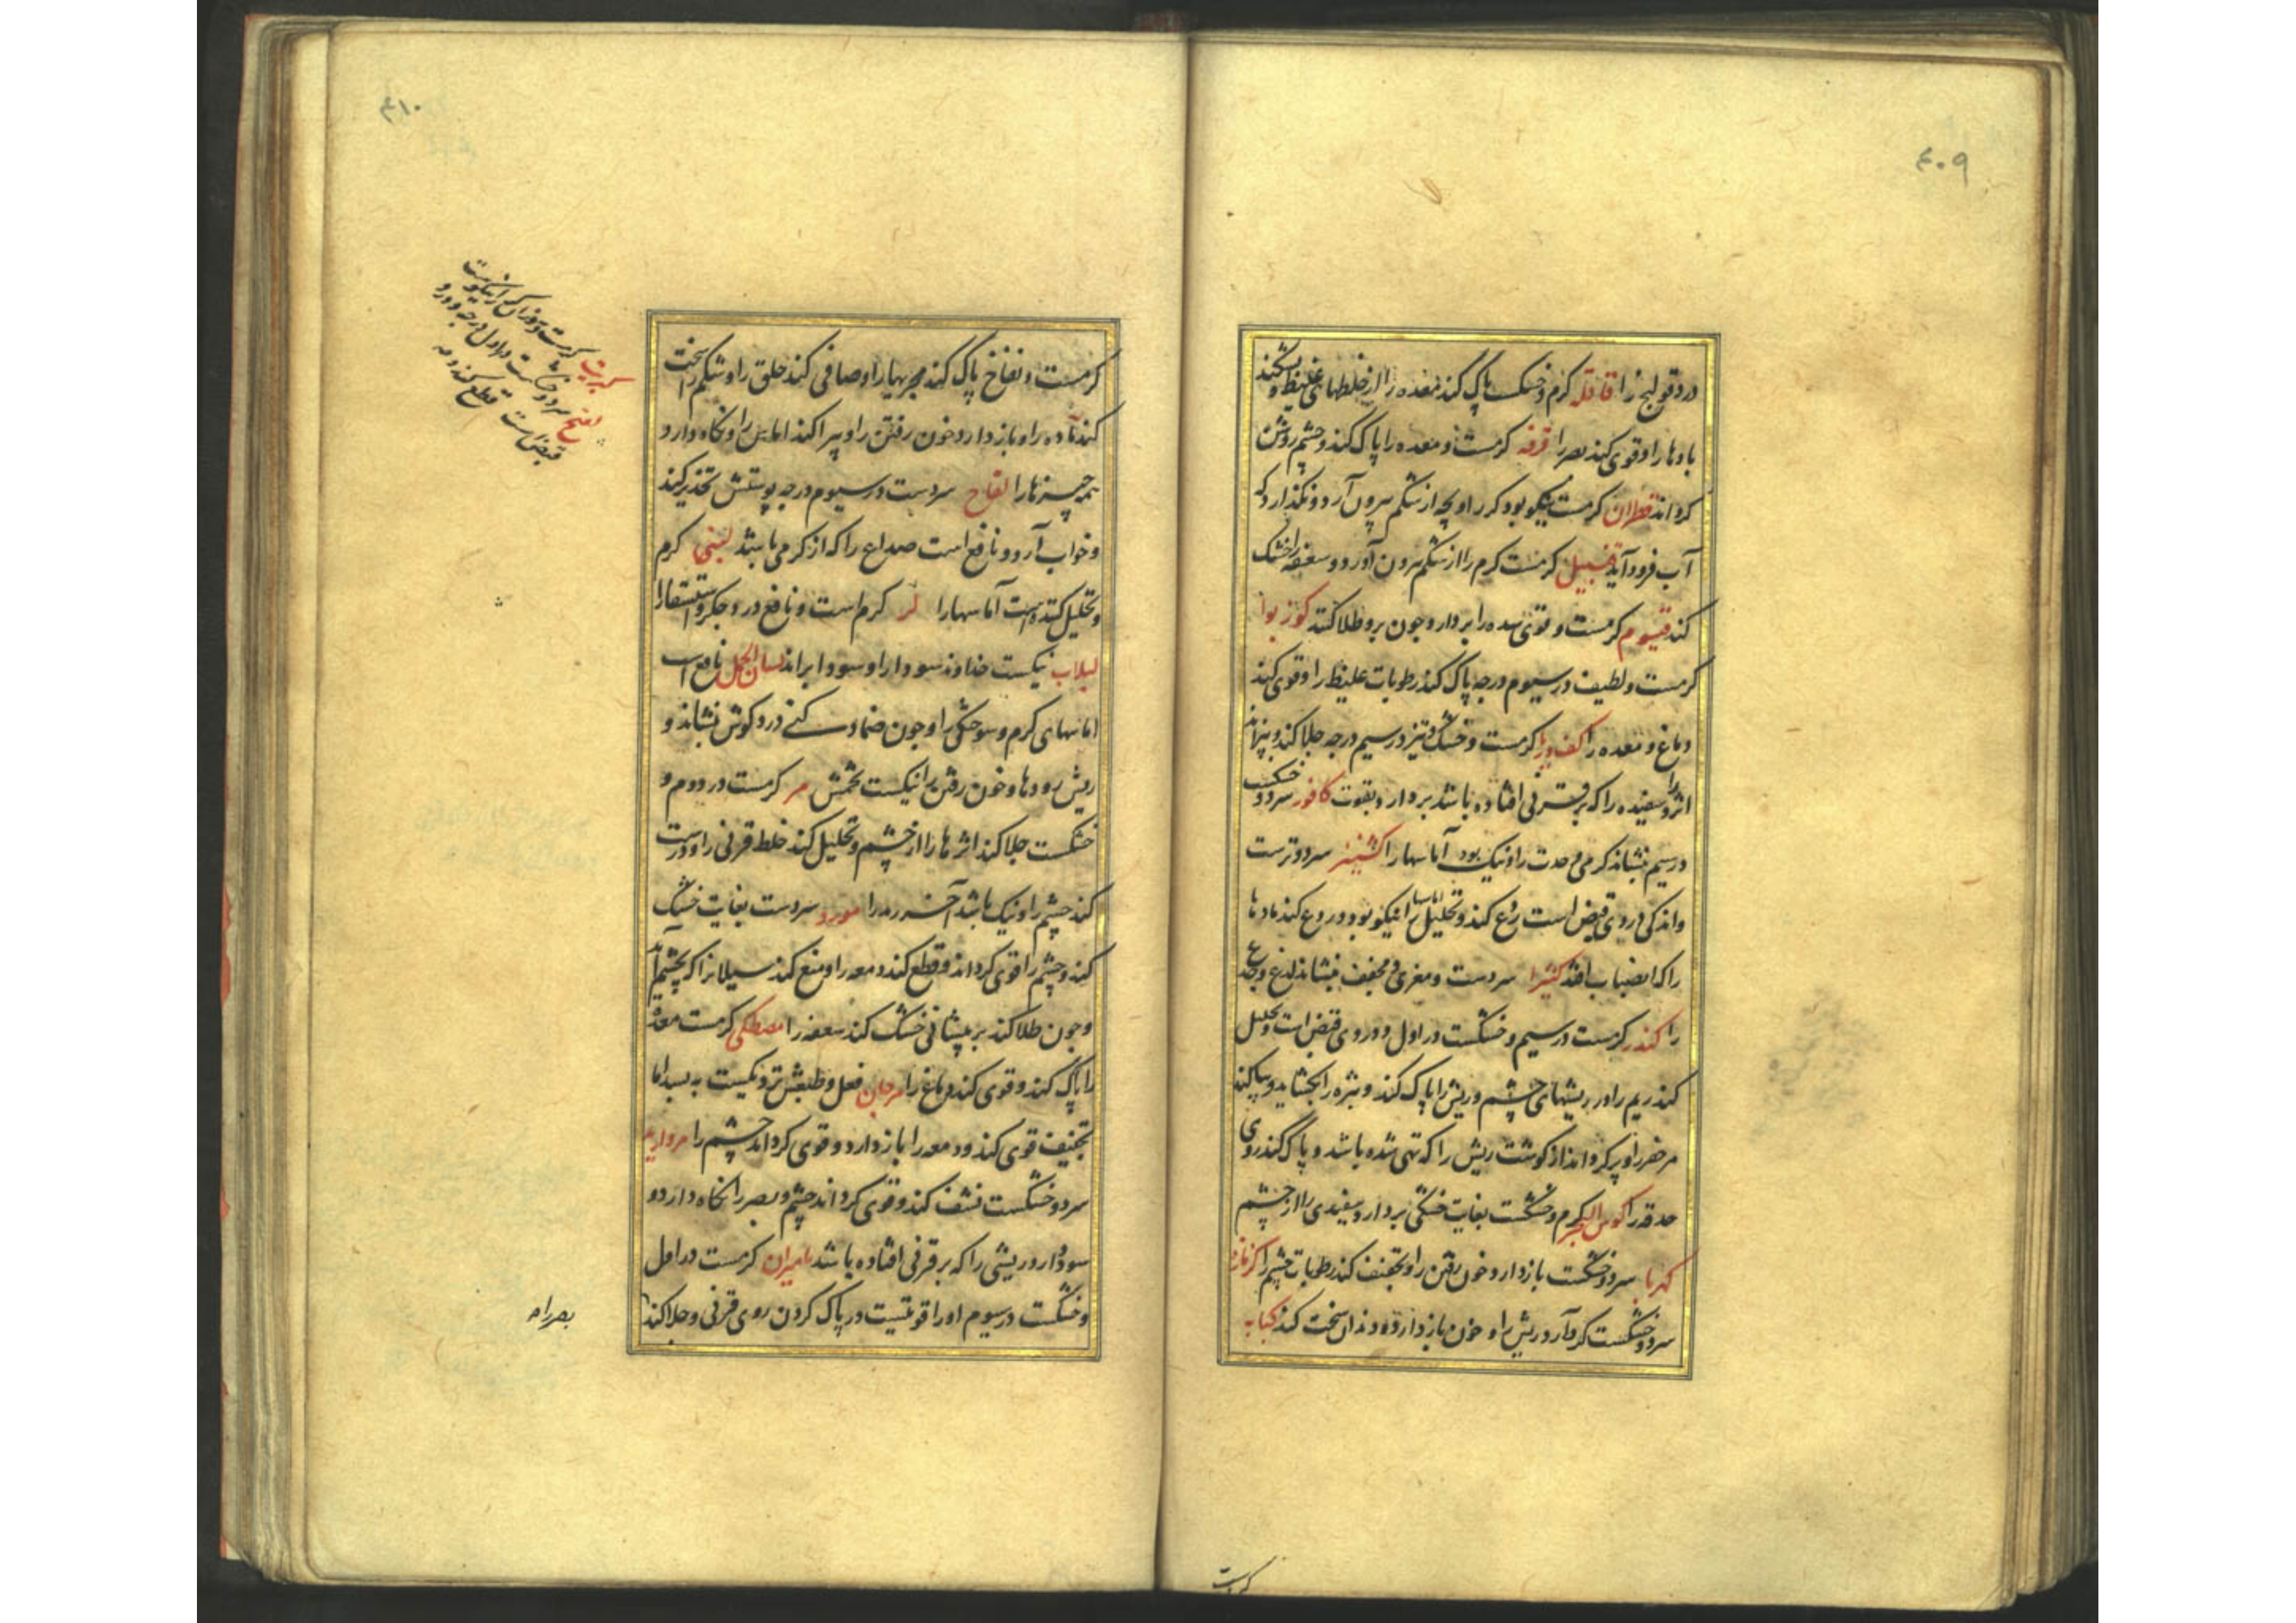 ۴۰۹
درد قولنج را قاقله گرم و خشک پاک کند معده را از خلطهای غلیظ و بشکند
بادها را و قوی کند بصر را قرفه کرمست و معده را پاک کند و چشم روشن
کرداند قطران کرمست نیکو بود کر را و بچه از شکم بیرون آرد و نکذارد که
آب فرود آید قنبیل کرمست کرم را از شکم برون آورد و سعفه را خشک
کند قیسوم کرمست و قوی سده را بردارد چون برو طلا کنند کوز بوا
کرمست و لطیف در سیوم درجه پاک کند رطوبات غلیظ را و قوی کند
دماغ و معده را کف دریا کرمست و خشک و تیز در سیم درجه جلا کند و بپزاند
اثر و سفیده را که بر قرنی افتاده باشد بردارد بقوت کافور سرد و خشک
در سیم نشاند کرمی و حدت را و نیک بود آماسها را کشنیز سرد و ترست
و اندکی در وی قبض است ردع کند و تحلیل اماسها را نیکو بود و ردع کند مادها
را که انضباب افتد کثیرا سردست و مغری و مجفف بنشاند لذع و جدع
را کندر کرمست در سیم و خشکست در اول و در وی قبض است و تحلیل
کند ریم را در ریشهای چشم و ریش را پاک کند و بثره را بکشاید و پاک کند
مرحفر را و پر کرداند از کوشت ریش را که تهی شده باشد و پاک کند روی
حدقه را کوس البحر کرم و خشکست بغایت خشکی بردارد سفیدی را از چشم
کهربا سرد و خشکست باز دارد خون رفتن را و تجفیف کند رطوبات چشم را کزمازد
سرد و خشکست کرد آرد ریش را و خون باز دارد و دندان سخت کند کبابه
کرمست
۴۱۰
کرمست و نفاخ پاک کند مجریها را و صافی کند حلق را و شکم را سخت
کند ماده را و باز دارد خون رفتن را و پراکند اماس را و نکاه دارد
همه چیزها را لفاح سردست در سیوم درجه پوستش تخدیر کند
و خواب آرد و نافع است صداع را که از کرمی باشد لبنی کرم
و تحلیل کننده است آماسها را لر کرم است و نافع درد جکر و استسقا را
لبلاب نیکست خداوند سودا را و سودا براند لسان الحمل نافع است
اماسهای کرم و سوختکی را و چون ضماد کنی درد کوش بنشاند و
ریش رودها و خون رفتن را نیکست تخمش مر کرمست در دوم و
خشکست جلا کند اثرها را از چشم و تحلیل کند خلط قرنی را و درست
کند چشم را و نیک باشد آخر رمد را مورد سردست بغایت خشک
کند و چشم را قوی کرداند و قطع کند دمعه را و منع کند سیلانرا که بچشم آید
و چون طلا کند بر پیشانی خشک کند سعفه را مصطکی کرمست معده
را پاک کند و قوی کند دماغ را مرجان فعل و طبعش نزدیکست به بسد اما
تجفیف قوی کند و دمعه را باز دارد و قوی کرداند چشم را مروارید
سرد و خشکست نشف کند و قوی کرداند چشم و بصر را نکاه دارد و
سود دارد ریشی را که بر قرنی افتاده باشد مامیران کرمست در اول
و خشکست در سیوم او را قوتیست در پاک کردن روی قرنی و جلا کند
کبریت کرمست و سوزان کر را نیکوست
سرد و خشکست در اول درجه و درو
قبض است قطع کند دمعه
بصر را و